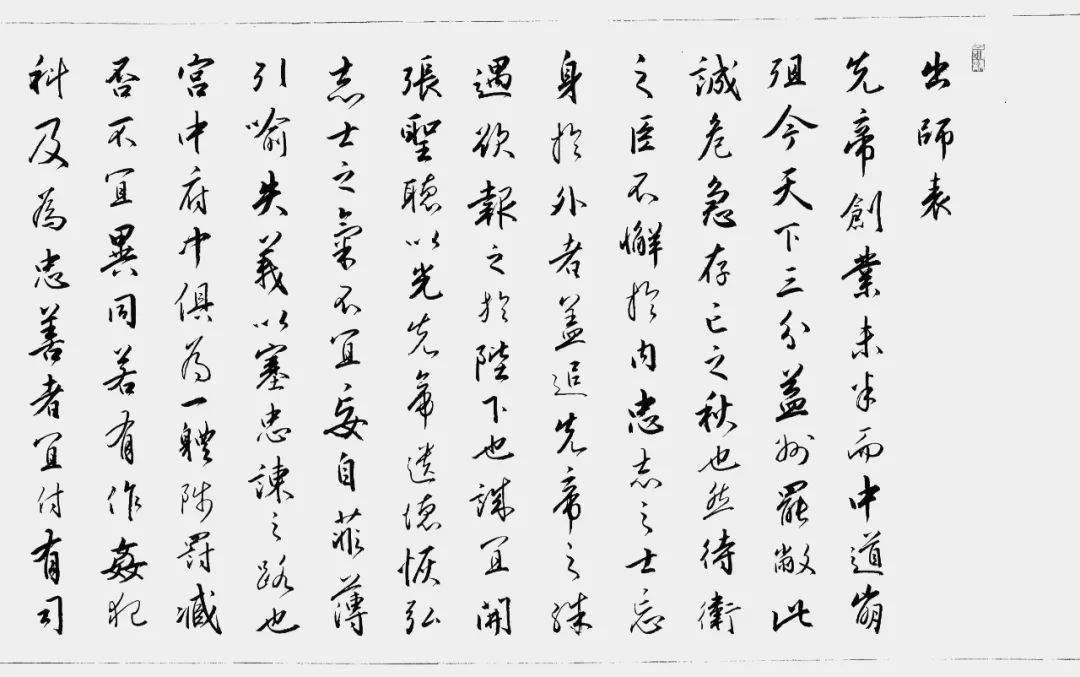 出師表
先帝創業未半而中道崩
殂今天下三分益州罷敝此
誠危急存亡之秋也然侍衛
之臣不懈於內忠志之士忘
身於外者蓋追先帝之殊
遇欲報之於陛下也誠宜開
張聖聽以光先帝遺德恢弘
志士之氣不宜妄自菲薄
引喻失義以塞忠諫之路也
宮中府中俱為一體陟罰臧
否不宜異同若有作姦犯
科及為忠善者宜付有司